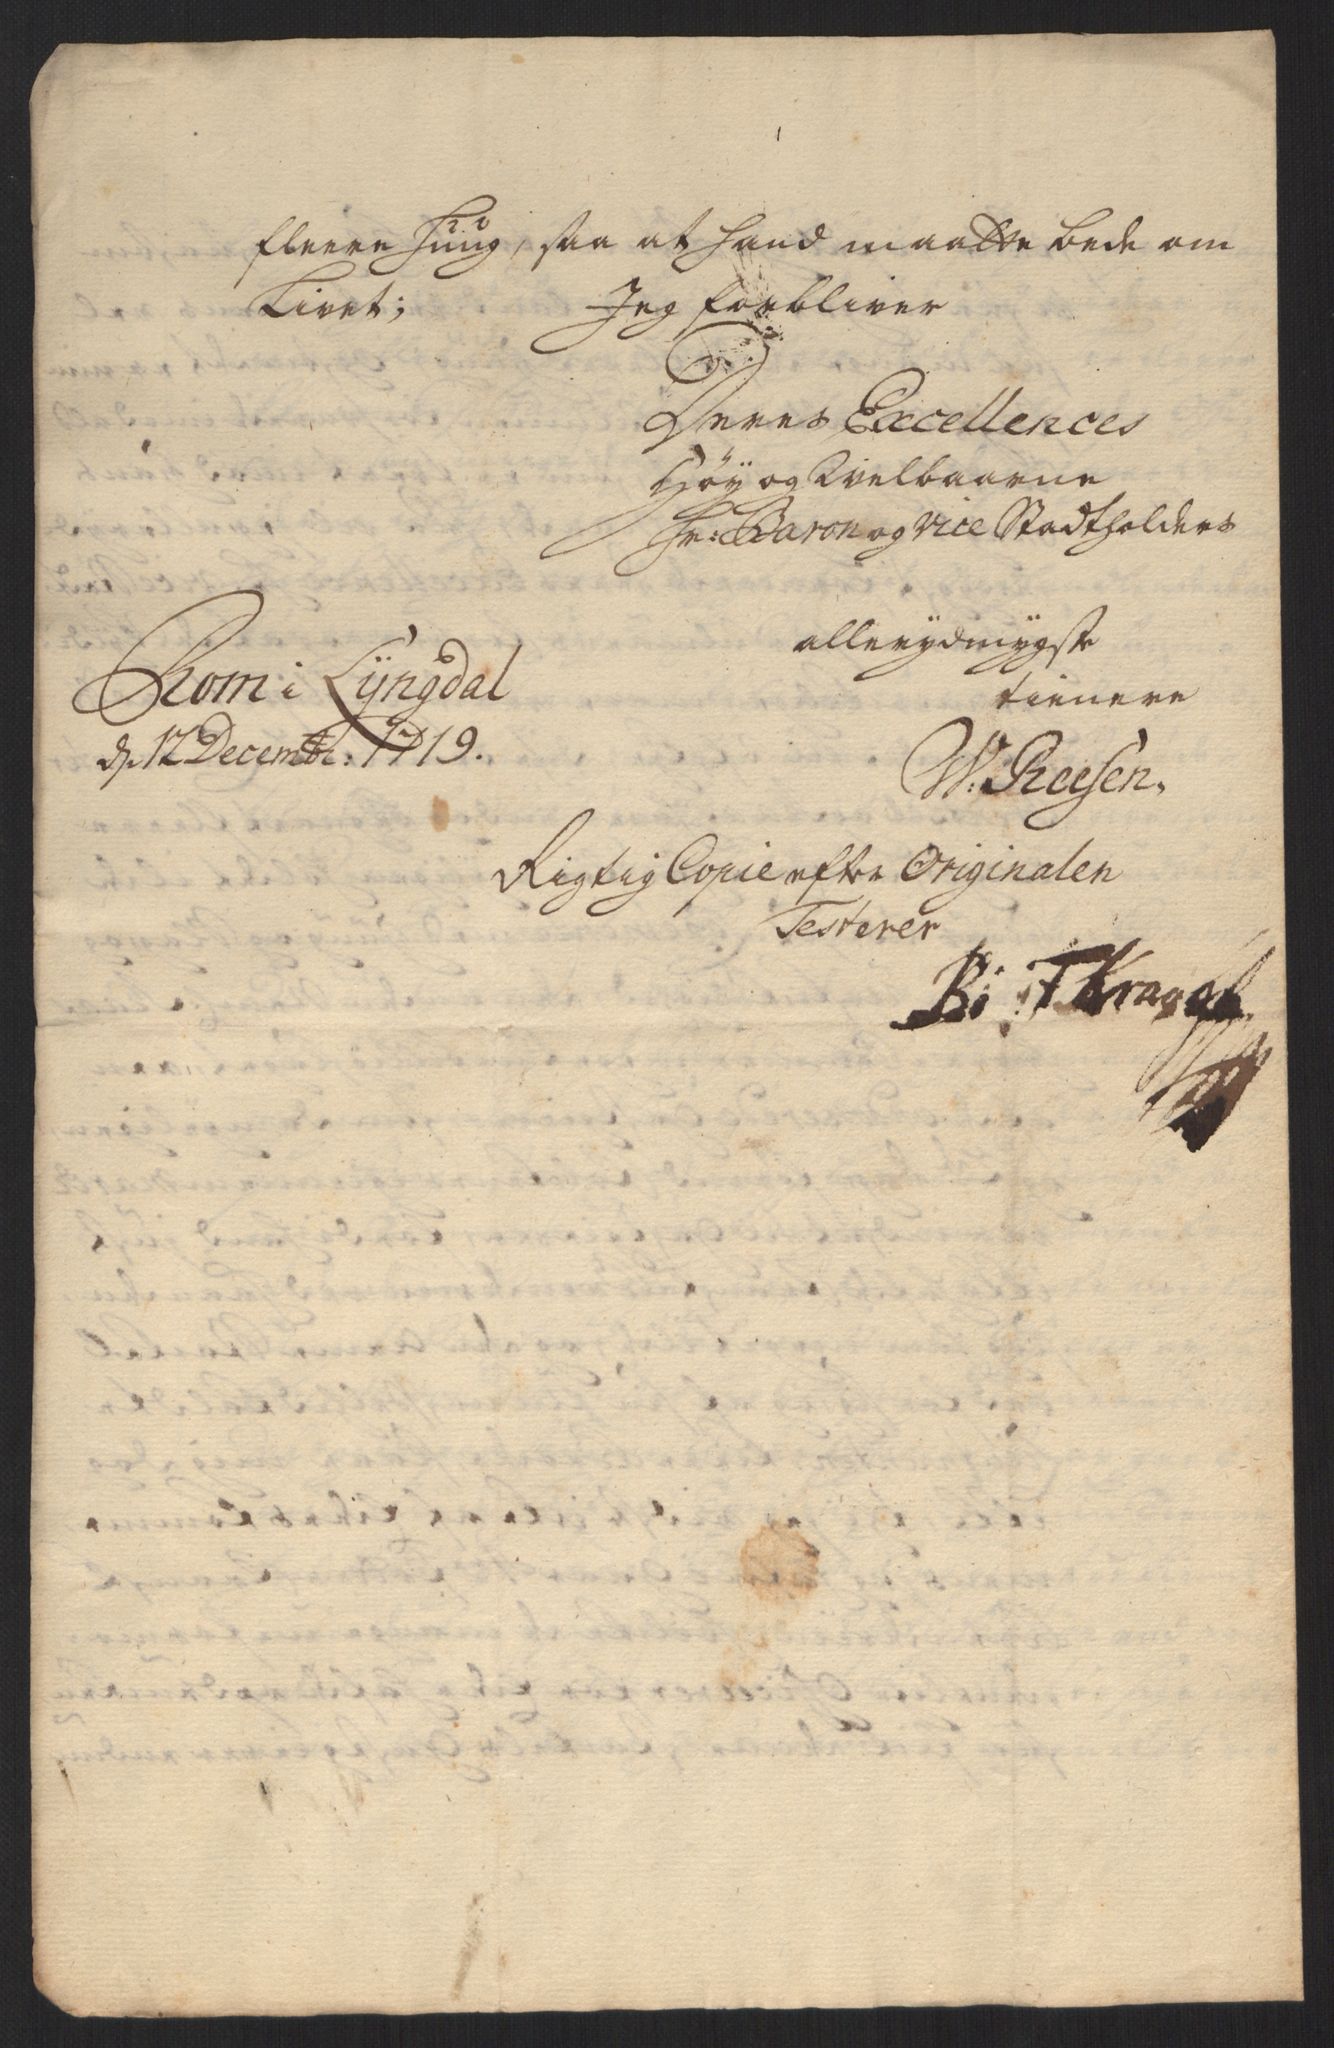 fleere huug, saa at hand maatte bede om
Livet; Jeg forbliver
Deres Excellences
Höy og Velbaarne
Hr: Baron og Vice Stadtholders
allerydmygste
tienere
Rom i Lÿngdal
d. 12 Decembr: 1719.
W: Reesen.
Rigtig Copie efter Originalen
Testerer
T Kragh